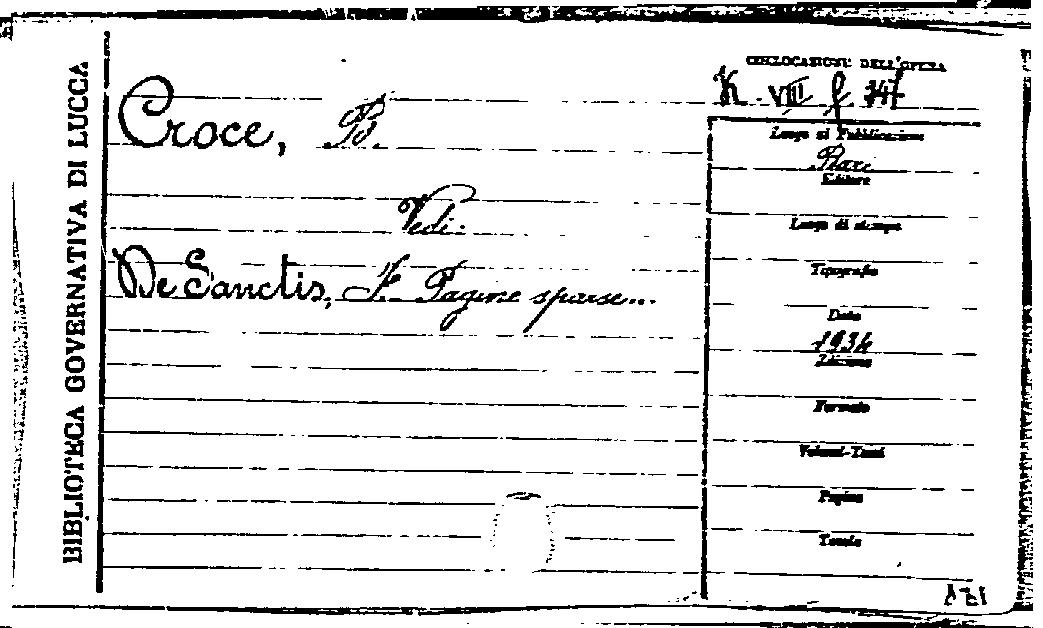 BIBLIOTECA GOVERNATIVA DI LUCCA
COLLOCAZIONE DELL'OPERA
K. VIII f 347
Croce, B.
Luogo di Pubblicazione
Editore
Vedi:
Luogo di stampa
De Sanctis, F. Pagine sparse...
Tipografia
Data
1934
Edizione
Formato
Volumi-Tomi
Pagine
Tavole